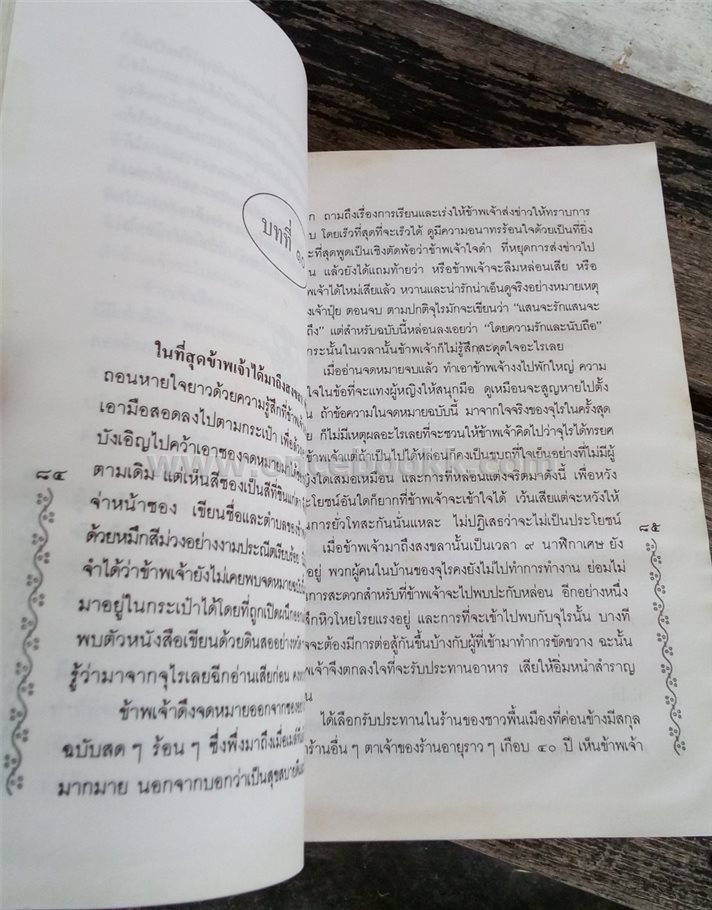 บทที่ ๑๐
ในที่สุดข้าพเจ้าได้มาถึงสงขลา
ถอนหายใจยาวด้วยความรู้สึกที่ข้าพเจ้า
เอามือสอดลงไปตามกระเป๋า เพื่อล้วง
บังเอิญไปคว้าเอาซองจดหมายมาได้ซอง
ตามเดิม แต่เห็นสีซองเป็นสีที่ขึ้นแก่ตา
จ่าหน้าซอง เขียนชื่อและตำบลของข้าพ
ด้วยหมึกสีม่วงอย่างงามประณีตเรียบร้อย
จำได้ว่าข้าพเจ้ายังไม่เคยพบจดหมายฉบับ
มาอยู่ในกระเป๋าได้โดยที่ถูกเปิดผนึก
พบตัวหนังสือเขียนด้วยดินสออย่างหวัด
รู้ว่ามาจากจุไรเลยฉีกอ่านเสียก่อน
ข้าพเจ้าดึงจดหมายออกจากซอง
ฉบับสด ๆ ร้อน ๆ ซึ่งพึ่งมาถึงเมื่อเมล์
มากมาย นอกจากบอกว่าเป็นสุขสบายดี
๘๔
ก ถามถึงเรื่องการเรียนและเร่งให้ข้าพเจ้าส่งข่าวให้ทราบการ
บ โดยเร็วที่สุดที่จะเร็วได้ ดูมีความอนาทรร้อนใจด้วยเป็นที่ยิ่ง
ะที่สุดพูดเป็นเชิงตัดพ้อว่าข้าพเจ้าใจดำ ที่หยุดการส่งข่าวไป
น แล้วยังได้แถมท้ายว่า หรือข้าพเจ้าจะลืมหล่อนเสีย หรือ
พเจ้าได้ใหม่เสียแล้ว หวานและน่ารักน่าเอ็นดูจริงอย่างหมายเหตุ
งเจ้าปุ้ย ตอนจบ ตามปกติจุไรมักจะเขียนว่า “แสนจะรักแสนจะ
ถึง” แต่สำหรับฉบับนี้หล่อนลงเอยว่า “โดยความรักและนับถือ”
กระนั้นในเวลานั้นข้าพเจ้าก็ไม่รู้สึกสะดุดใจอะไรเลย
เมื่ออ่านจดหมายจบแล้ว ทำเอาข้าพเจ้างงไปพักใหญ่ ความ
ใจในข้อที่จะแทงผู้หญิงให้สนุกมือ ดูเหมือนจะสูญหายไปตั้ง
น ถ้าข้อความในจดหมายฉบับนี้ มาจากใจจริงของจุไรในครั้งสุด
ย ก็ไม่มีเหตุผลอะไรเลยที่จะชวนให้ข้าพเจ้าคิดไปว่าจุไรได้ทรยศ
ข้าพเจ้าแต่ถ้าเป็นไปได้หล่อนก็คงเป็นขบถที่ใจเย็นอย่างที่ไม่มีผู้
ญิงใดเสมอเหมือน และการที่หล่อนแต่งจริตมาดังนี้ เพื่อหวัง
ะโยชน์อันใดก็ยากที่ข้าพเจ้าจะเข้าใจได้ เว้นเสียแต่จะหวังให้
นการยั่วโทสะกันนั่นแหละ ไม่ปฏิเสธว่าจะไม่เป็นประโยชน์
เมื่อข้าพเจ้ามาถึงสงขลานั้นเป็นเวลา ๙ นาฬิกาเศษ ยัง
อยู่ พวกผู้คนในบ้านของจุไรคงยังไม่ไปทำการทำงาน ย่อมไม่
การสะดวกสำหรับที่ข้าพเจ้าจะไปพบปะกับหล่อน อีกอย่างหนึ่ง
สึกหิวโหยโรยแรงอยู่ และการที่จะเข้าไปพบกับจุไรนั้น บางที
าจจะต้องมีการต่อสู้กันขึ้นบ้างกับผู้ที่เข้ามาทำการขัดขวาง ฉะนั้น
พเจ้าจึงตกลงใจที่จะรับประทานอาหาร เสียให้อิ่มหนำสำราญ
น
ได้เลือกรับประทานในร้านของชาวพื้นเมืองที่ค่อนข้างมีสกุล
าร้านอื่น ๆ ตาเจ้าของร้านอายุราว ๆ เกือบ ๔๐ ปี เห็นข้าพเจ้า
๘๕